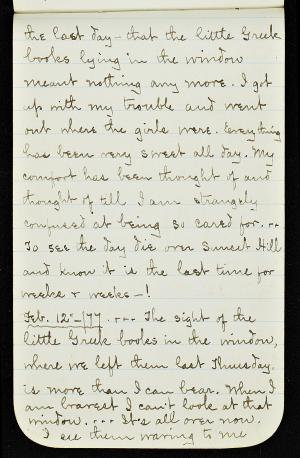 the last day – that the little Greek
books lying in the window
meant nothing any more. I got
up with my trouble and went
out where the girls were. Everything
has been very sweet all day. My
comfort has been thought of and
thought of till I am strangely
confused at being so cared for. ...
To see the day die over Sunset Hill
and know it is the last time for
weeks & weeks – !
Feb. 12 – '77. .... The sight of the
little Greek books in the window,
where we left them last Thursday,
is more than I can bear. When I
am bravest I can't look at that
window. .... It's all over now.
I see them waving to me